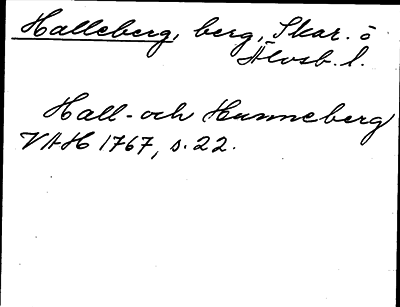 Halleberg, berg, Skar. o
Älvsb. l.
Hall- och Hunneberg
VAH 1767, s. 22.